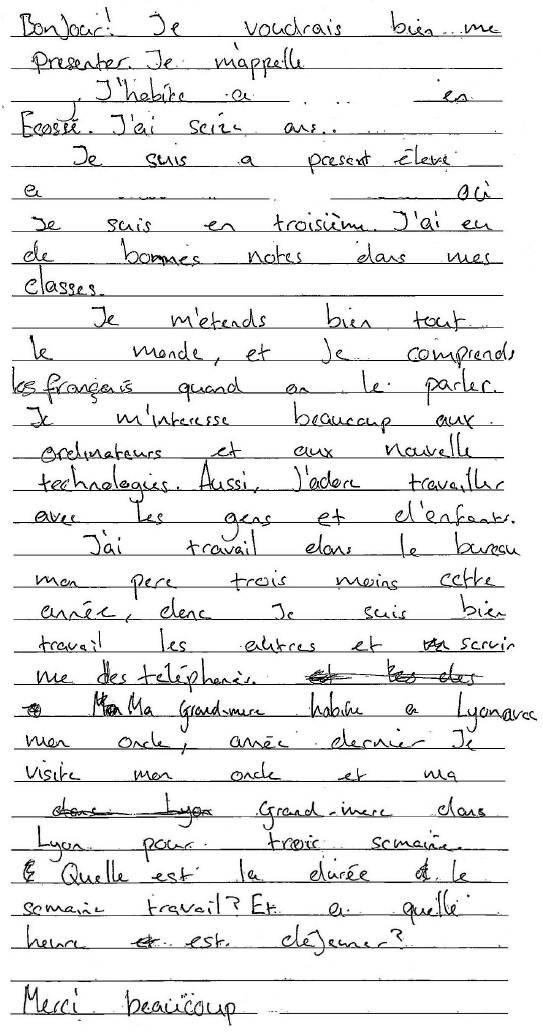 Bonjour! Je voudrais bien me
presenter. Je m'appelle
, J'habite a en
Ecosse. J'ai seize ans..
Je suis a present élevé
a où
Je suis en troisième. J'ai eu
de bonnes notes dans mes
classes.
Je m'etends bien tout
le monde, et Je comprends
les français quand on le parler.
Je m'interesse beaucoup aux
ordinateurs et aux nouvelle
technologies. Aussi, J'adore travailler
avec les gens et d'enfants.
J'ai travail dans le bureau
mon pere trois moins cette
année, donc Je suis bien
travail les autres et servir
me des téléphones.
Ma Grand-mere habite a Lyon avec
mon oncle, année dernier Je
visite mon oncle et ma
Grand-mere dans
Lyon pour trois semaine.
Quelle est la durée de le
semaine travail? Et a quelle
heure est dejeuner?
Merci beaucoup